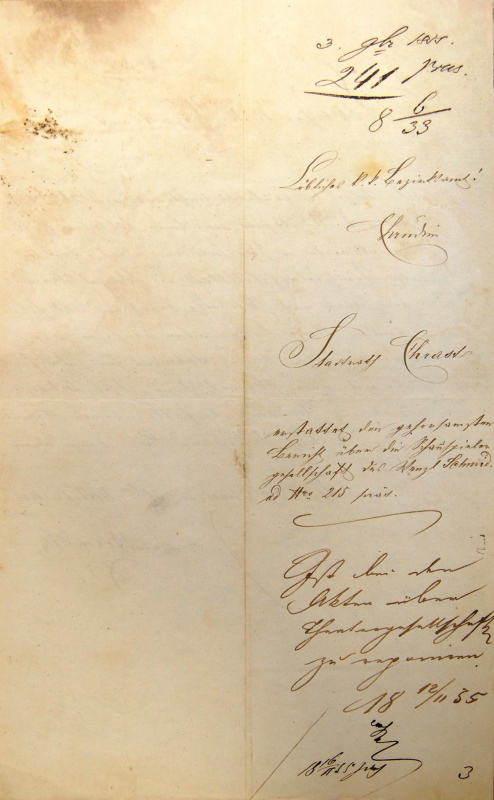 3. 9br 1855.
241 präs.
8 6/33
Löbliches k. k. Bezirksamt!
Chrudim
Stadtrath Chrast
erstattet den gehorsamsten
Bericht über die Schauspieler
gesellschaft des Wenzl Schmid.
ad Nro 215 präs.
Ist bei den
Akten über
Theatergesellschaft
zu reponiren.
18 12/11 55
18 16/11 55
3